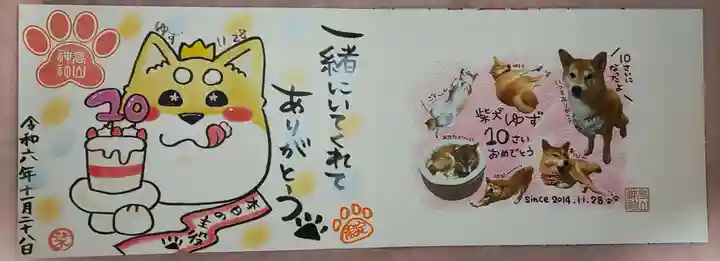 高山
神社
ゆず
11.28
一緒にいてくれて
ありがとう
10
本日の主役
限定
令和六年十一月二十八日
10さいに
なったよ
柴犬ゆず
10さい
おめでとう
since 2014.11.28